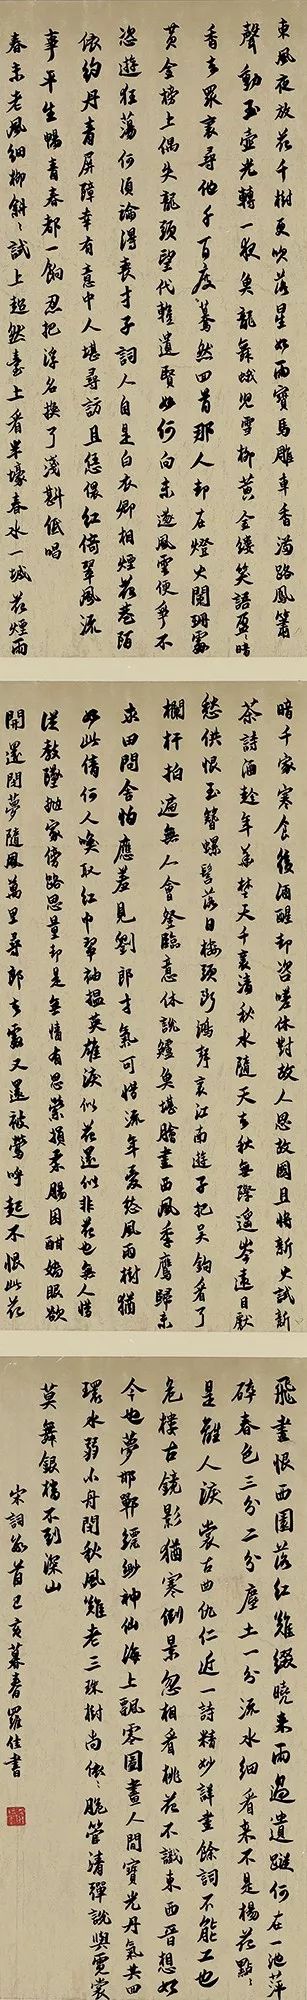 東風夜放花千樹更吹落星如雨寶馬雕車香滿路鳳簫
聲動玉壺光轉一夜魚龍舞蛾兒雪柳黃金縷笑語盈暗
香去眾裏尋他千百度驀然回首那人卻在燈火闌珊處
黃金榜上偶失龍頭望代暫遺賢如何向未遂風雲便爭不
恣遊狂蕩何須論得喪才子詞人自是白衣卿相煙花巷陌
依約丹青屏障幸有意中人堪尋訪且恁偎紅倚翠風流
事平生暢青春都一餉忍把浮名換了淺斟低唱
春未老風細柳斜〻試上超然臺上看半壕春水一城花煙雨
暗千家寒食後酒醒卻咨嗟休對故人思故國且將新火試新
茶詩酒趁年華楚天千裏清秋水隨天去秋無際遙岑遠目獻
愁供恨玉簪螺髻落日樓頭斷鴻聲裏江南遊子把吳鉤看了
欄杆拍遍無人會登臨意休說鱸魚堪膾盡西風季鷹歸未
求田問舍怕應羞見劉郎才氣可惜流年憂愁風雨樹猶
如此倩何人喚取紅巾翠袖搵英雄淚似花還似非花也無人惜
從教墜拋家傍路思量卻是無情有思縈損柔腸困酣嬌眼欲
開還閉夢隨風萬里尋郎去處又還被鶯呼起不恨此花
飛盡恨西園落紅難綴曉來雨過遺蹤何在一池萍
碎春色三分二分塵土一分流水細看來不是楊花點〻
是離人淚裳古曲仇仁近一詩精妙詳盡餘詞不能工也
危樓古鏡影猶寒倒景忽相看桃花不識東西晉想如
今也夢邯鄲縹緲神仙海上飄零圖畫人間寶光丹氣共回
環水弱小舟閑秋風難老三珠樹尚依〻脆管清彈說與霓裳
莫舞銀橋不到深山
宋詞首己亥暮春羅佳書